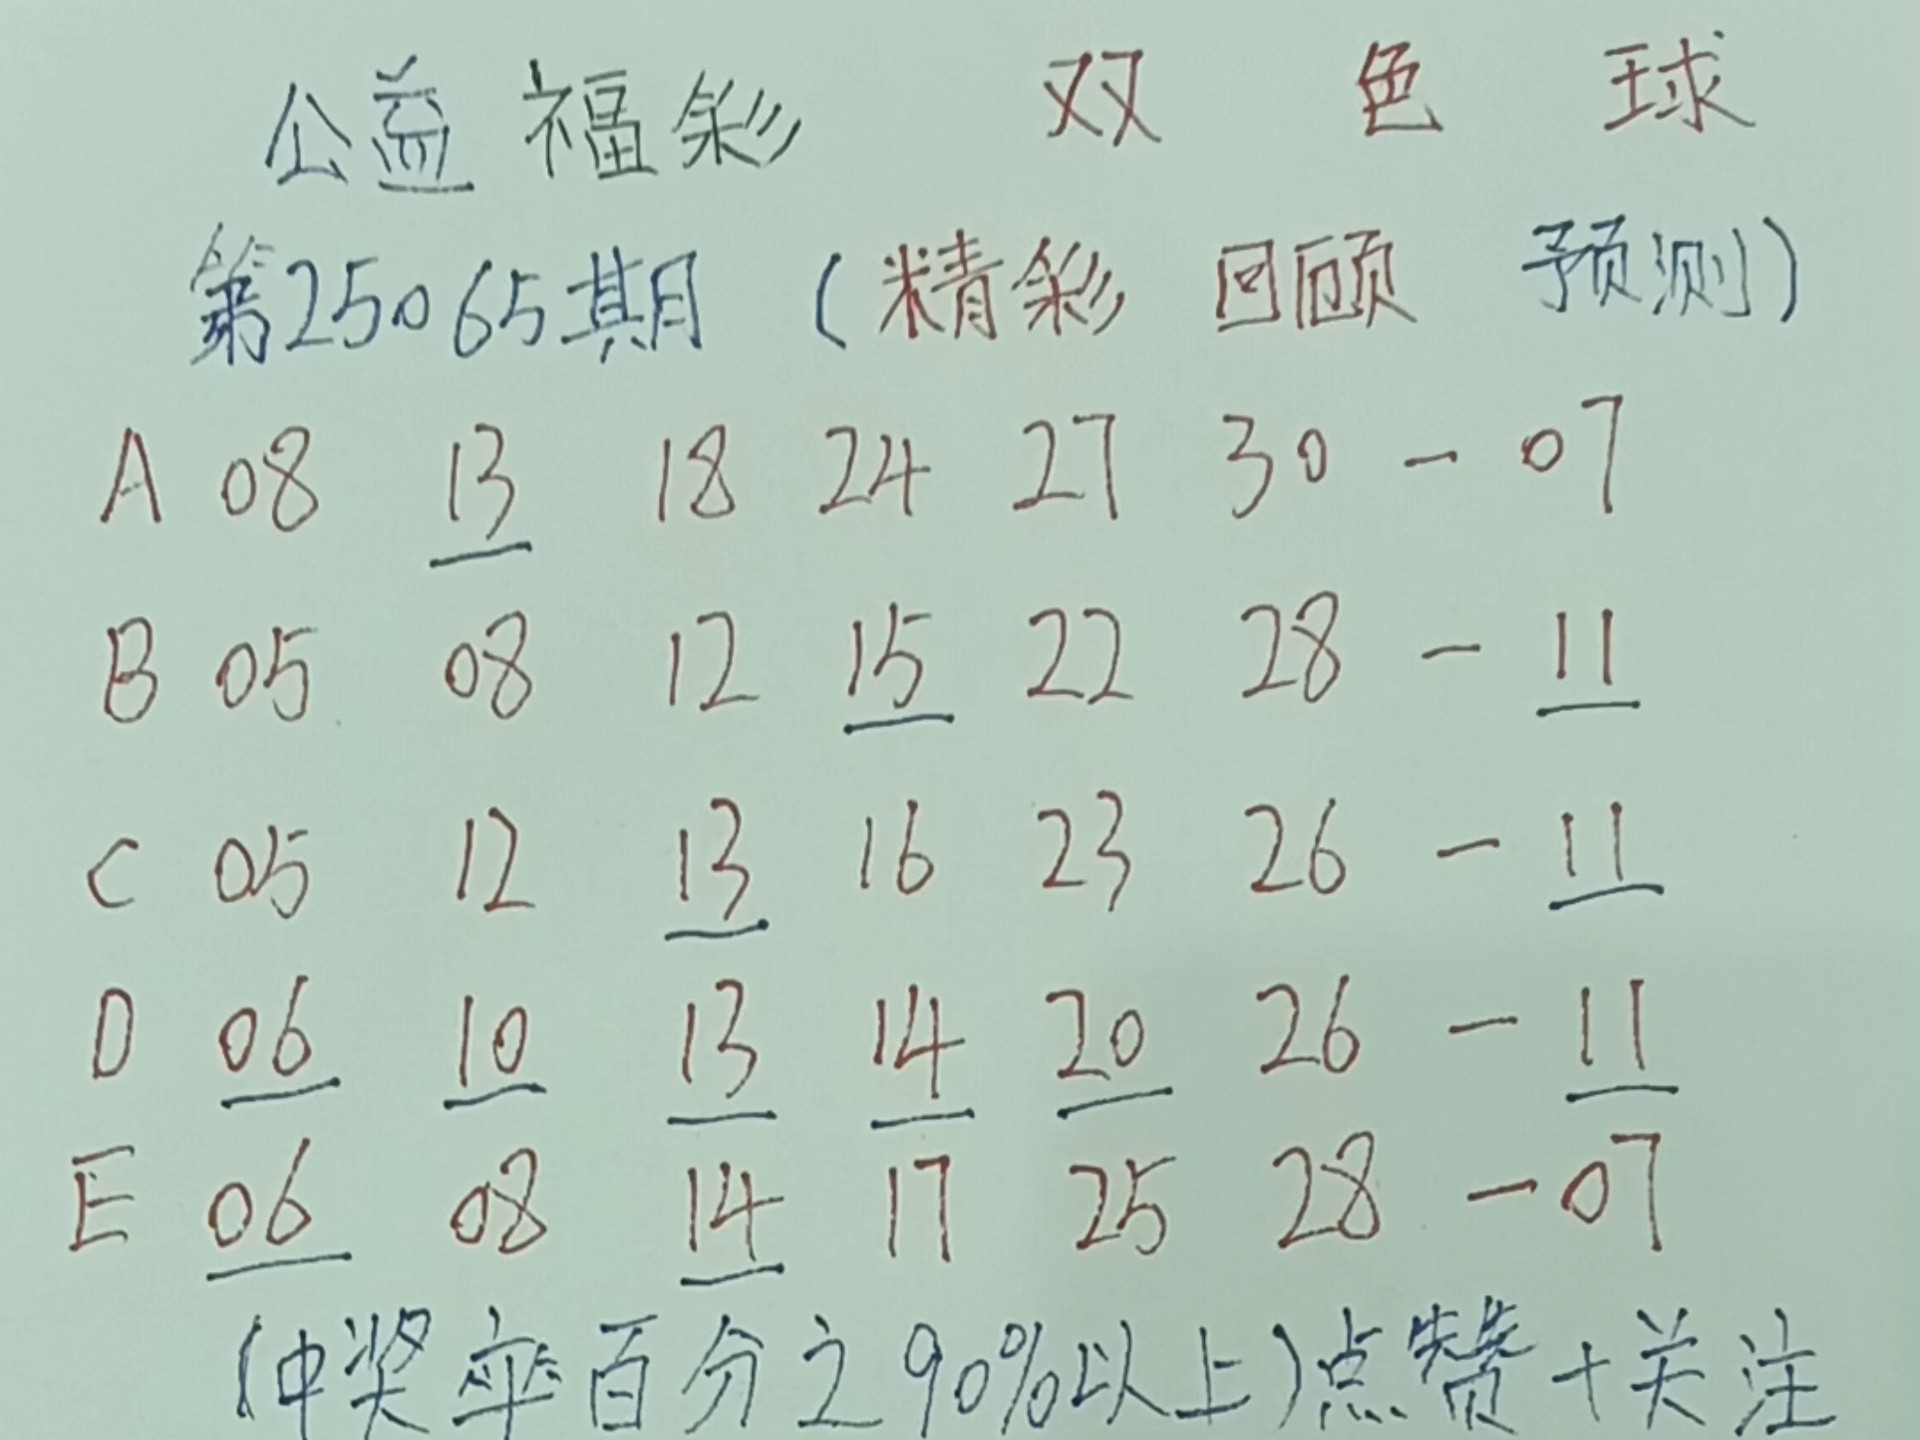 公益福彩 双色球
第25065期（精彩回顾 预测）
A 08 13 18 24 27 30 - 07
B 05 08 12 15 22 28 - 11
C 05 12 13 16 23 26 - 11
D 06 10 13 14 20 26 - 11
E 06 08 14 17 25 28 - 07
（中奖率百分之90%以上）点赞+关注